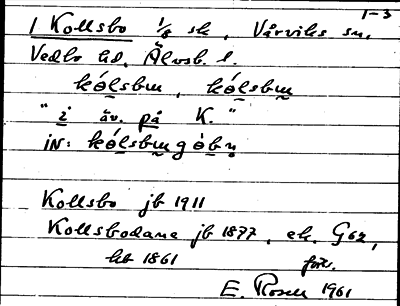 1-3
1 Kollsbo 1/8 sk, Vårviks sn,
Vedbo hd, Älvsb. l.
kólsbɯ, kólsbɯ
" i äv. på K. "
iN: kólsbɯgòbṇ
Kollsbo jb 1911
Kollsbodane jb 1877, ek. G62,
hb 1861
förr.
E. Rosell 1961